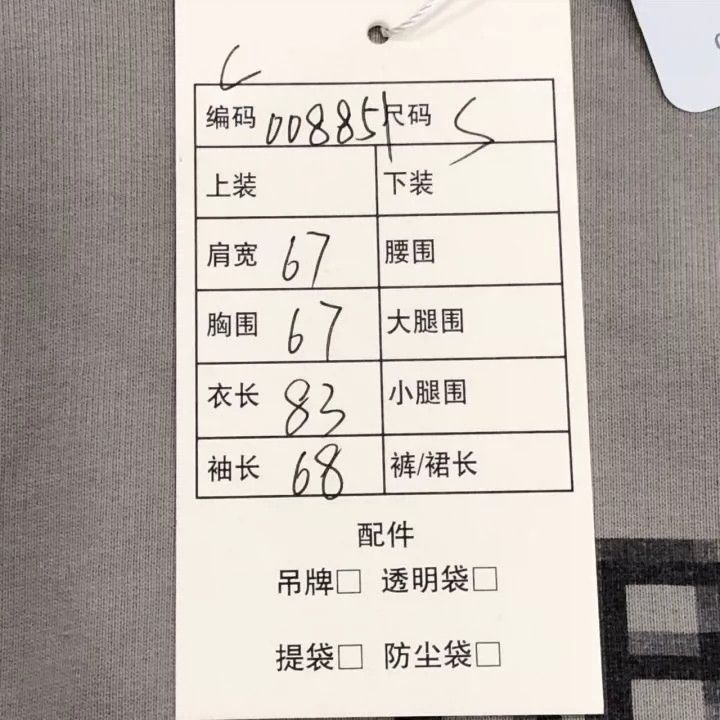 C
编码 00885 尺码 S
上装 下装
肩宽 67 腰围
胸围 67 大腿围
衣长 83 小腿围
袖长 68 裤/裙长
配件
吊牌□ 透明袋□
提袋□ 防尘袋□